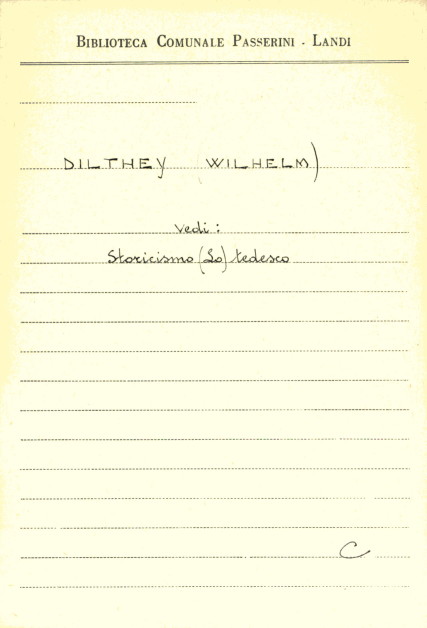 BIBLIOTECA COMUNALE PASSERINI - LANDI
DILTHEY (WILHELM)
vedi:
Storicismo (Lo) tedesco
C